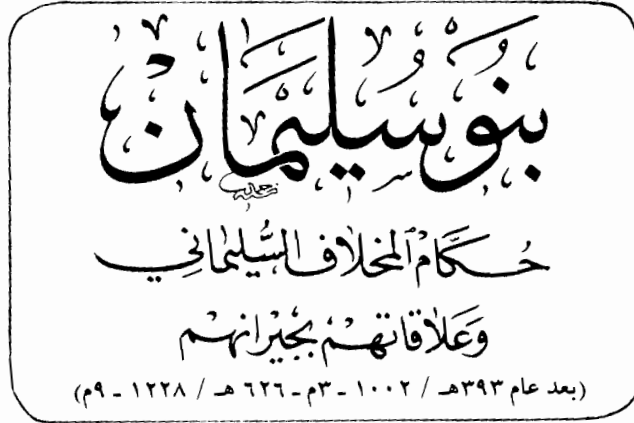 بنو سليمان
حكام المخلاف السليماني
وعلاقاتهم بجيرانهم
(بعد عام ٣٩٣هـ / ١٠٠٢ ـ ٣م ـ ٦٢٦ هـ / ١٢٢٨ ـ ٩م)